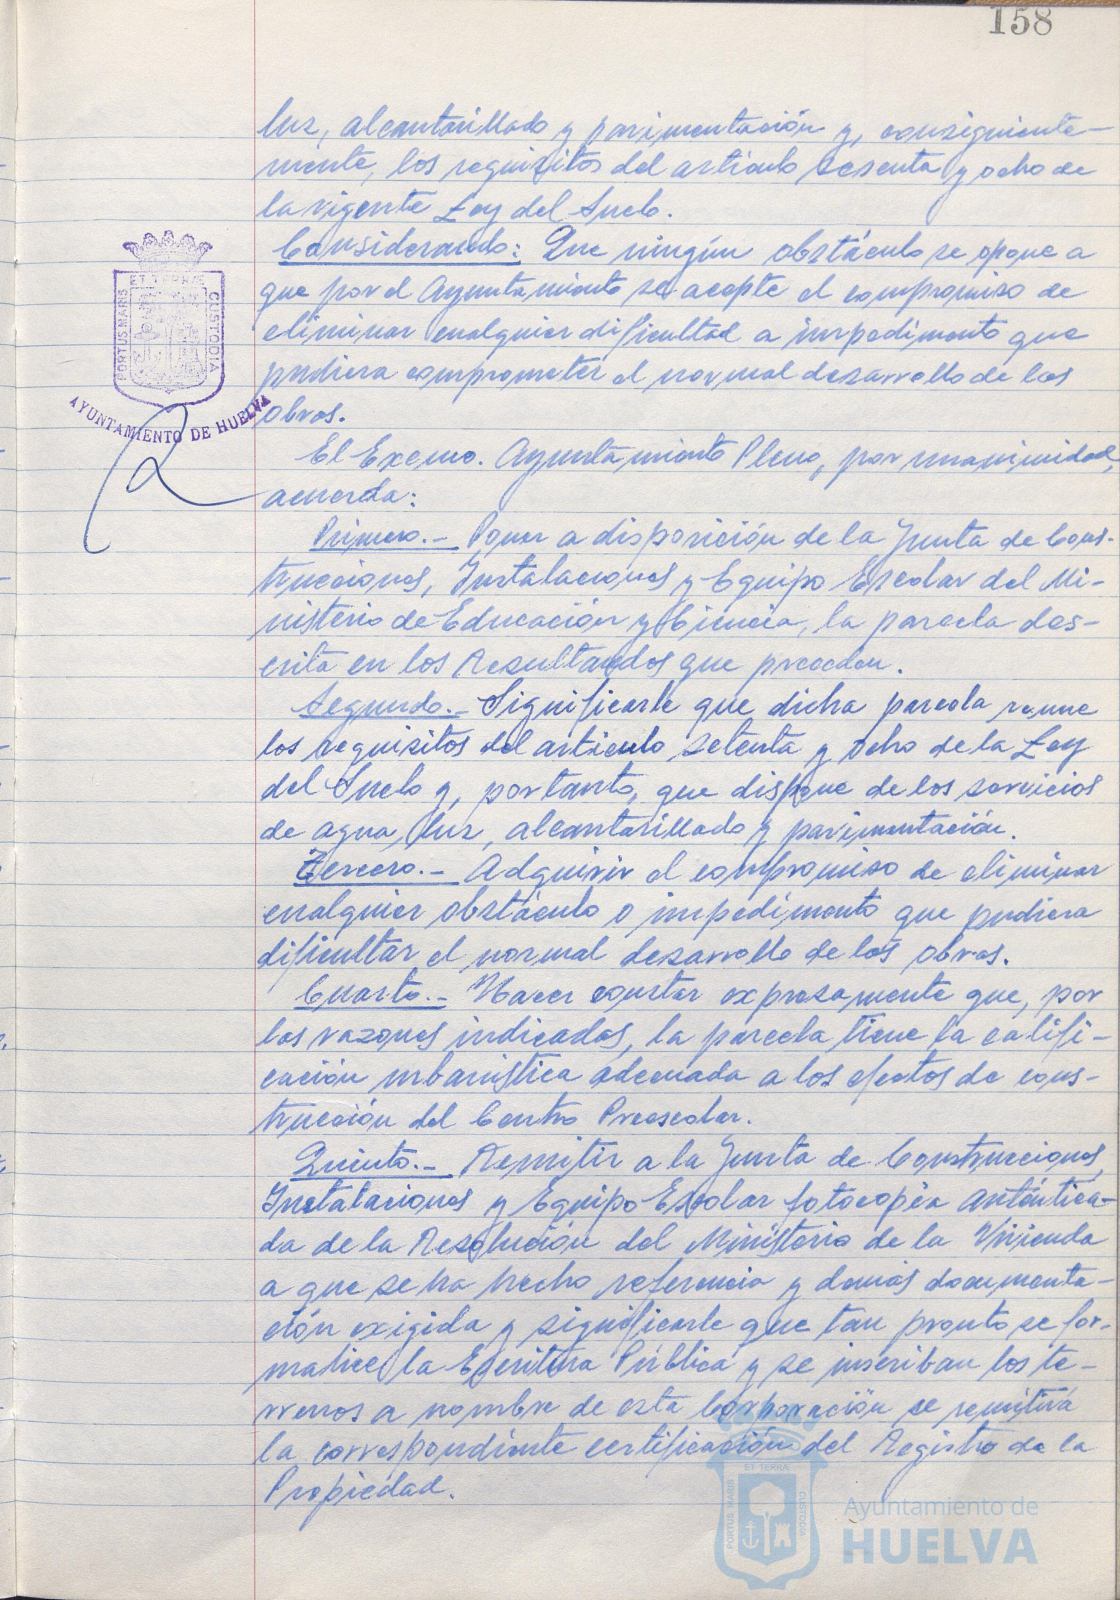 158
luz, alcantarillado y pavimentación y, consiguiente-
mente, los requisitos del artículo sesenta y ocho de
la vigente Ley del Suelo.
Considerando: Que ningún obstáculo se opone a
que por el Ayuntamiento se acepte el compromiso de
eliminar cualquier dificultad o impedimento que
pudiera comprometer el normal desarrollo de las
obras.
El Excmo. Ayuntamiento Pleno, por unanimidad,
acuerda:
Primero.- Poner a disposición de la Junta de Cons-
trucciones, Instalaciones y Equipo Escolar del Mi-
nisterio de Educación y Ciencia, la parcela des-
crita en los Resultandos que preceden.
Segundo.- Significarle que dicha parcela reune
los requisitos del artículo setenta y ocho de la Ley
del Suelo y, por tanto, que dispone de los servicios
de agua, luz, alcantarillado y pavimentación.
Tercero.- Adquirir el compromiso de eliminar
cualquier obstáculo o impedimento que pudiera
dificultar el normal desarrollo de las obras.
Cuarto.- Hacer constar expresamente que, por
las razones indicadas, la parcela tiene la califi-
cación urbanística adecuada a los efectos de cons-
trucción del Centro Preescolar.
Quinto.- Remitir a la Junta de Construcciones,
Instalaciones y Equipo Escolar fotocopia autentica-
da de la Resolución del Ministerio de la Vivienda
a que se ha hecho referencia y demás documenta-
ción exigida y significarle que tan pronto se for-
malice la Escritura Pública y se inscriban los te-
rrenos a nombre de esta Corporación se remitirá
la correspondiente certificación del Registro de la
Propiedad.
PORTUS MARIS ET TERRÆ CUSTODIA
AYUNTAMIENTO DE HUELVA
PORTUS MARIS ET TERRÆ CUSTODIA
Ayuntamiento de
HUELVA